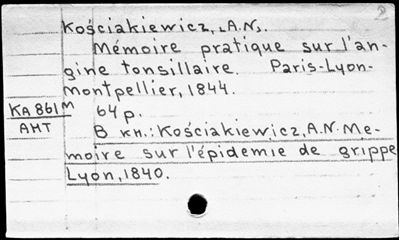 2
Kościakiewicz, [A.N].
Mémoire pratique sur l'an-
gine tonsillaire. Paris-Lyon-
Montpellier, 1844.
KA 861 M
64 p.
АНТ
В кн.: Kościakiewicz, A.N. Me-
moire sur l'épidemie de grippe
Lyon, 1840.